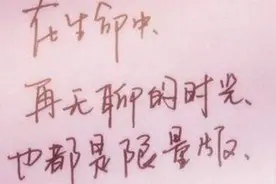 在生命中、
再无聊的时光、
也都是限量版、